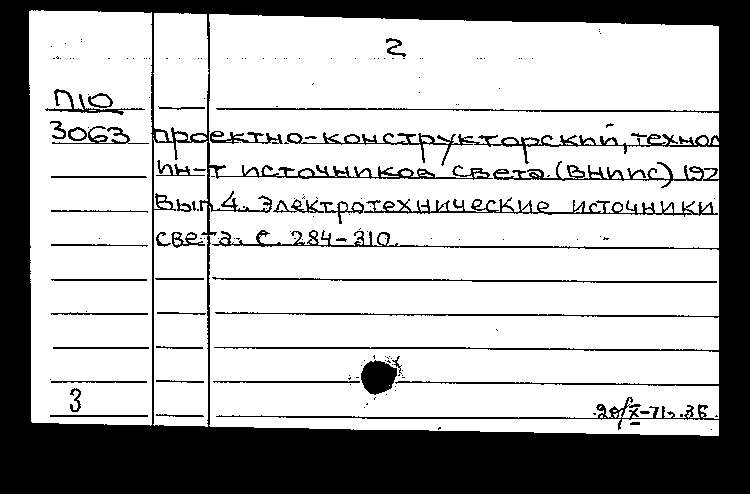 2
П10
3063 проектно-конструкторский, технол
ин-т источников света. (ВНИИС) 192
Вып. 4. Электротехнические источники
света. С. 284-310.
3